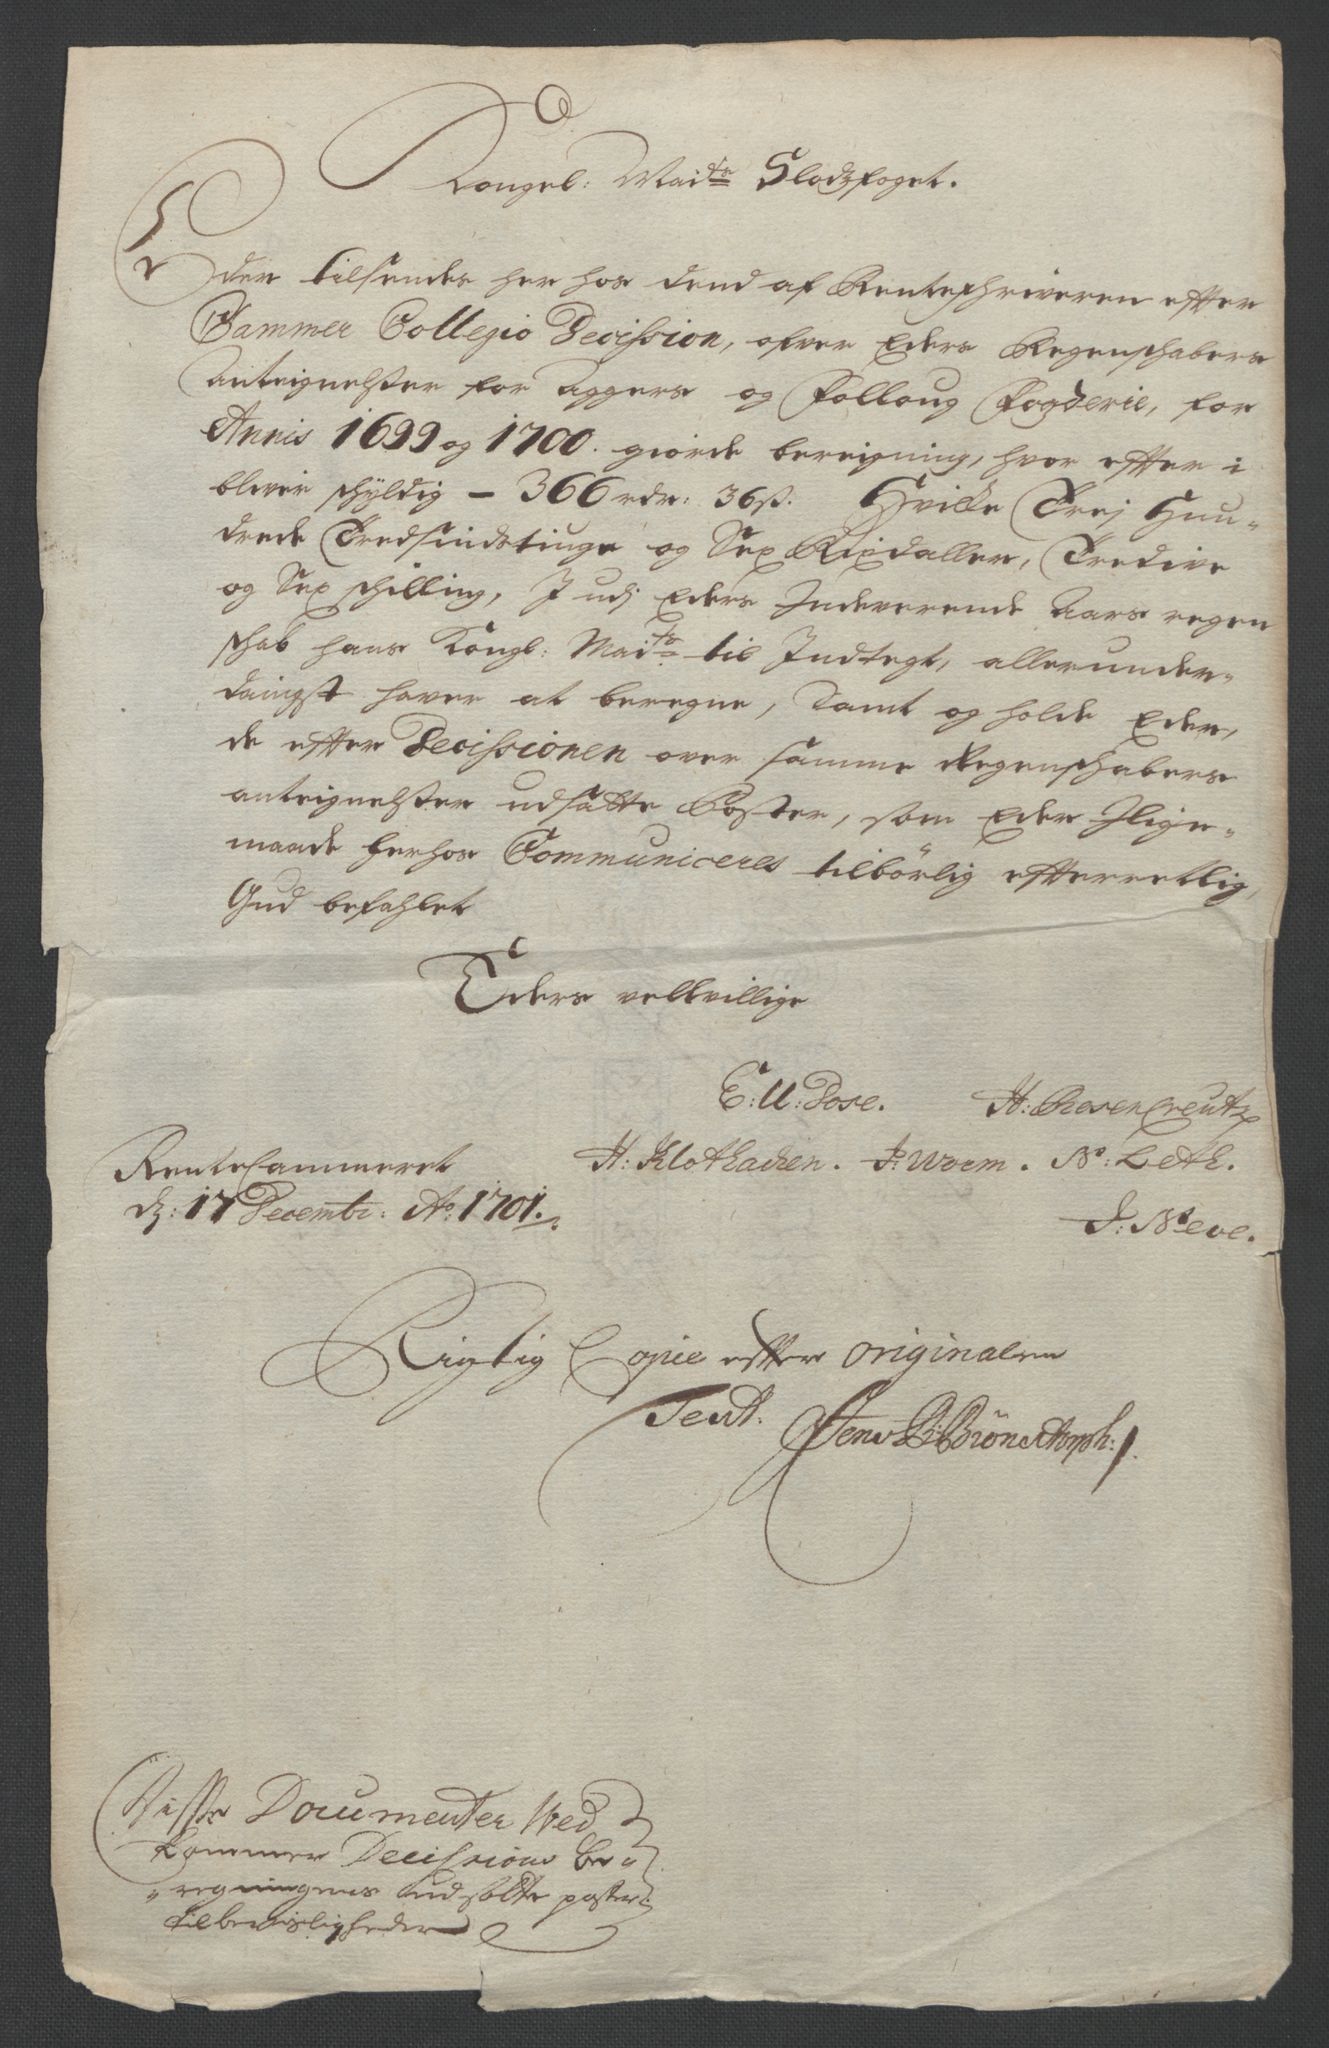 Kongel: Maits Slodzfoget.
Eder tilsendes her hos dend af Renteschriveren efter
Cammer Collegio Decission, ofver Eders Regenschabers
Anteignelser for Aggers og Folloug Fogderie, for
Annis 1699 og 1700. giorde bereigning, hvor efter i
blever schyldig – 366 rdr: 36 s. Hvilke Trej Hun-
drede Tredsindstiuge og Sex Rixdaller, Tredive
og Sex schilling, I udj Eders Indeverende Aars regen
schab hans Kongl: Maits til Indtegt, allerunder-
danigst haver at beregne, Samt og holde Eder,
de efter Decissionen over samme Regenschabers
anteignelser udsatte Poster, som Eder Ilige-
maade herhos Communiceres tilbörlig efterrettlig,
Gud befahlet
Eders velvillige
E: U: Dose. H: Rosencreutz
RenteCammeret H: Klothacken. J: Worm. N: Leth.
d: 17 Decembr: Ao: 1701. J: Neve.
Rigtig Copie efter originalen
Test. Jens B: Brönsdorph:
Disse Documenter Ved
kommer Decissions be-
regningens udsatte poster
til bevisligheder